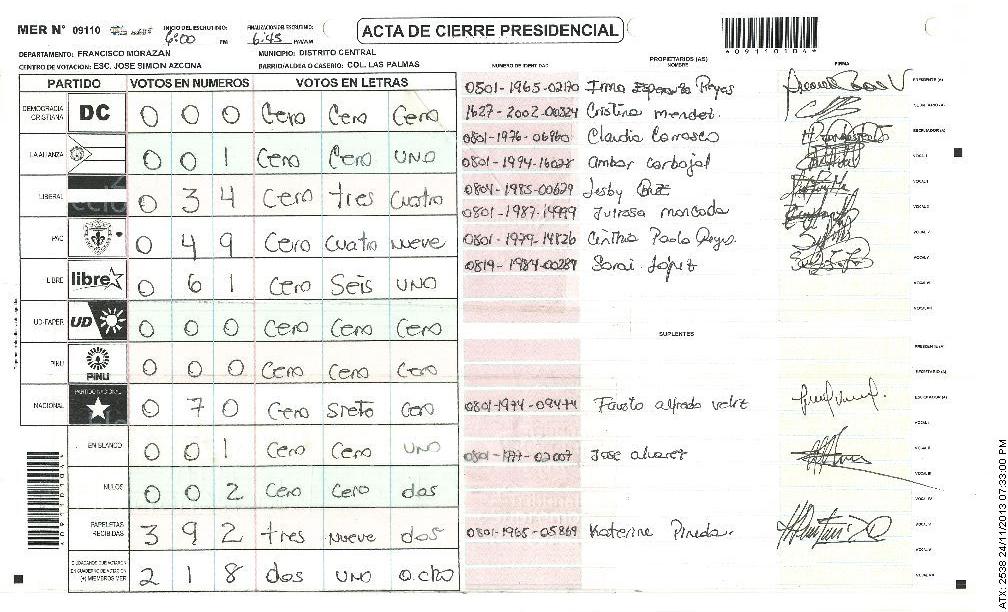 MER N° 09110 INICIO DEL ESCRUTINIO: 6:00 PM FINALIZACION DEL ESCRUTINIO: 6:45 PM/AM
ACTA DE CIERRE PRESIDENCIAL
09110104
DEPARTAMENTO: FRANCISCO MORAZAN MUNICIPIO: DISTRITO CENTRAL
CENTRO DE VOTACION: ESC. JOSE SIMON AZCONA BARRIO/ALDEA O CASERIO: COL. LAS PALMAS
PARTIDO VOTOS EN NUMEROS VOTOS EN LETRAS
DEMOCRACIA CRISTIANA DC 0 0 0 Cero Cero Cero
LA ALIANZA 0 0 1 Cero Cero UNO
LIBERAL 0 3 4 Cero tres Cuatro
PAC 0 4 9 Cero Cuatro Nueve
LIBRE libre 0 6 1 Cero Seis UNO
UD-FAPER UD 0 0 0 Cero Cero Cero
PINU PINU 0 0 0 Cero Cero Cero
NACIONAL PARTIDO NACIONAL 0 7 0 Cero Sieto Cero
EN BLANCO 0 0 1 Cero Cero UNO
NULOS 0 0 2 Cero Cero dos
PAPELETAS RECIBIDAS 3 9 2 tres Nueve dos
CIUDADANOS QUE VOTARON EN CUADERNO DE VOTACION (+) MIEMBROS MER 2 1 8 dos UNO ocho
PROPIETARIOS (AS)
NUMERO DE IDENTIDAD NOMBRE FIRMA
0801-1965-02170 Irma Esperanza Reyes PRESIDENTE (A)
1627-2002-00324 Cristina mendez SECRETARIO (A)
0801-1976-06860 Claudia Carrasco ESCRUTADOR (A)
0801-1994-16028 Ambar Carbajal VOCAL I
0804-1985-00629 Jesby VOCAL II
0801-1987-14999 VOCAL III
0801-1979-14826 Cinthia Paola Reyes. VOCAL IV
0819-1984-00289 Sarai López VOCAL V
VOCAL VI
VOCAL VII
SUPLENTES
PRESIDENTE (A)
SECRETARIO (A)
0801-1974-09474 Fausto alfredo velez ESCRUTADOR (A)
VOCAL I
0801-1977-02007 Jose alvarez VOCAL II
VOCAL III
VOCAL IV
0801-1965-05869 Katerine Pineda. VOCAL V
VOCAL VI
VOCAL VII
ATX: 2538 24/11/2013 07:33:00 PM